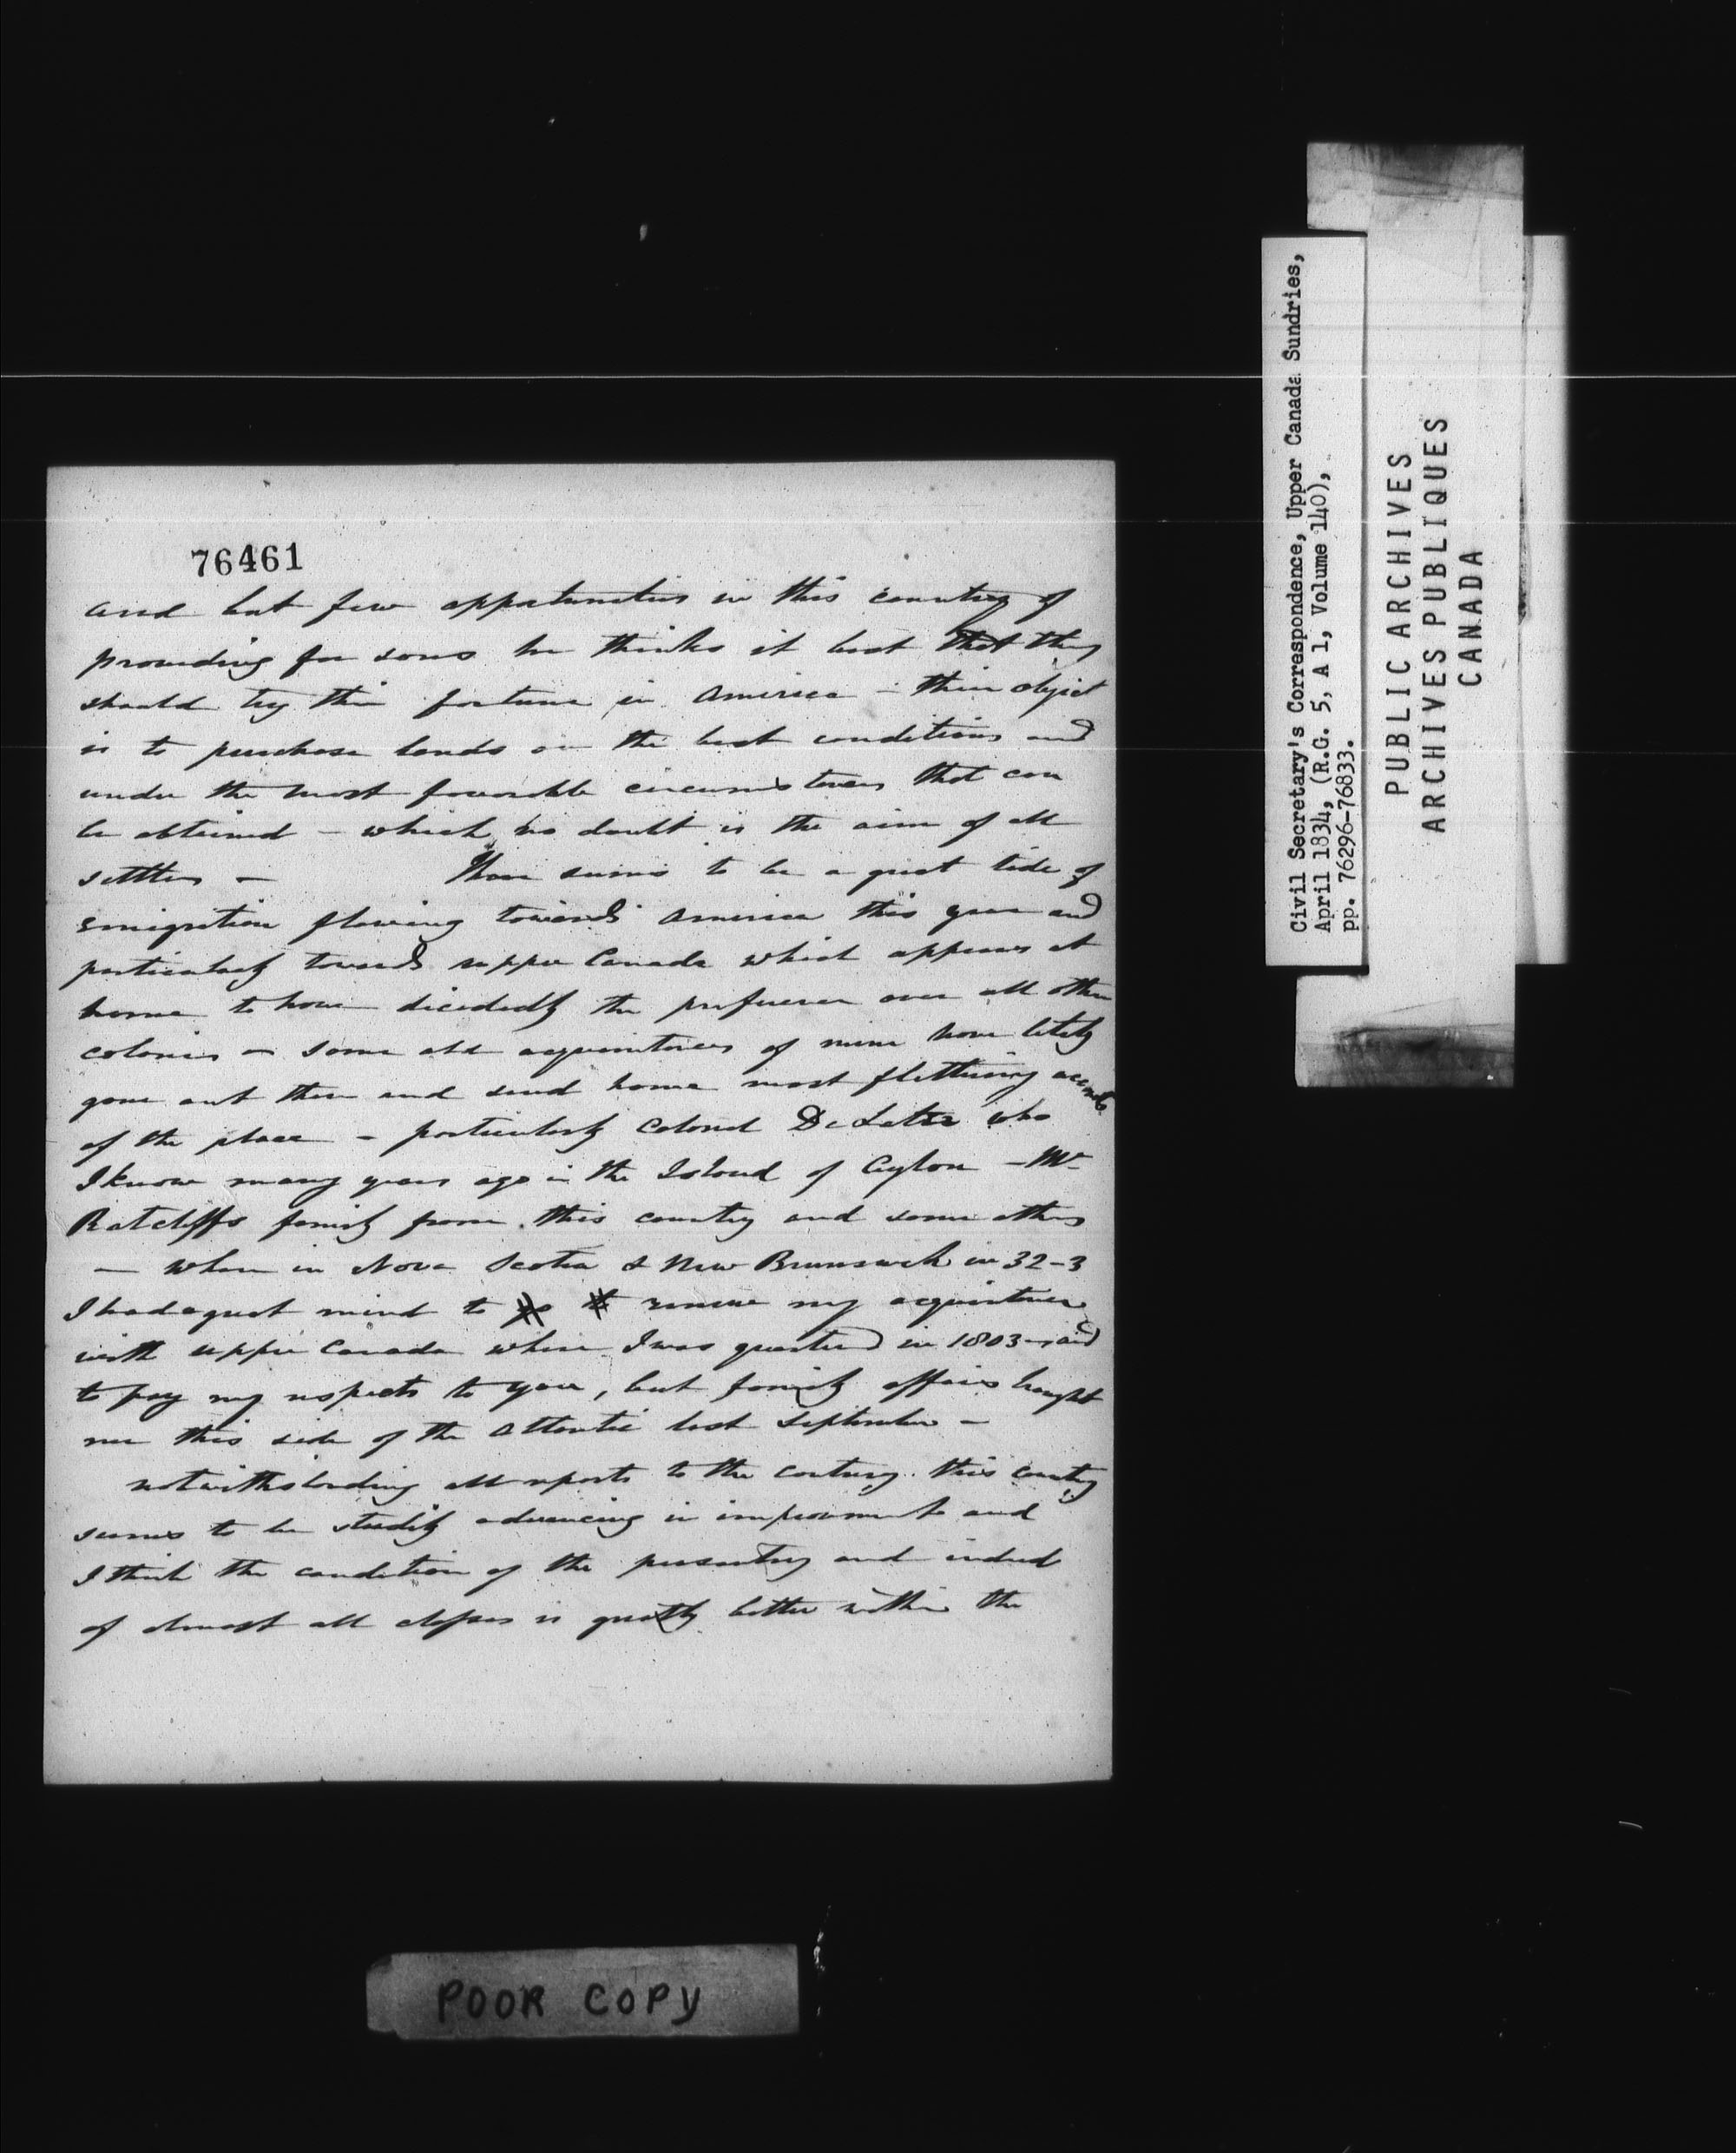 76461
and but few oppertunities in this country of
providing for sons he thinks it best that they
should try their fortune in America - their object
is to purchase lands on the best conditions and
under the most favorable circumstances that can
be obtained - which no doubt is the aim of all
settlers - There seems to be a great tide of
emigration flowing towards America this year and
particularly towards upper Canada which appears at
home to have decidedly the preference over all other
colonies - some old acquaintances of mine have lately
gone out there and send home most flattering accounts
of the place - particularly Colonel De Latre who
I knew many years ago in the Island of Ceylon - Mr
Ratcliffs family from this country and some others
- when in Nova Scotia & New Brunswick in 32-3
I had a great mind to renew my acquaintance
with upper Canada where I was quartered in 1803 - and
to pay my respects to you, but family affairs brought
me this side of the Atlantic last September -
notwithstanding all reports to the contrary this country
seems to be steadily advancing in improvement and
I think the condition of the peasantry and indeed
of almost all classes is greatly better within the
Civil Secretary's Correspondence, Upper Canada Sundries,
April 1834, (R.G. 5, A 1, Volume 140),
pp. 76296-76833.
PUBLIC ARCHIVES
ARCHIVES PUBLIQUES
CANADA
POOR COPY